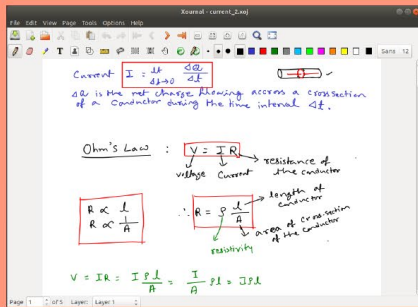 Xournal - current_2.xoj
File Edit View Page Tools Options Help
Sans 12
Current I = lt Δt→0 ΔQ/Δt
ΔQ is the net charge flowing accross a crosssection
of a conductor during the time interval Δt.
Ohm's Law : V = I R → resistance of
the conductor
voltage Current
R ∝ l
R ∝ 1/A
∴ R = ρ l/A
length of
conductor
area of cross.section
of the conductor
resistivity
V = IR = I ρ l/A = I/A ρl = Jρl
Page 1 of 5 Layer: Layer 1